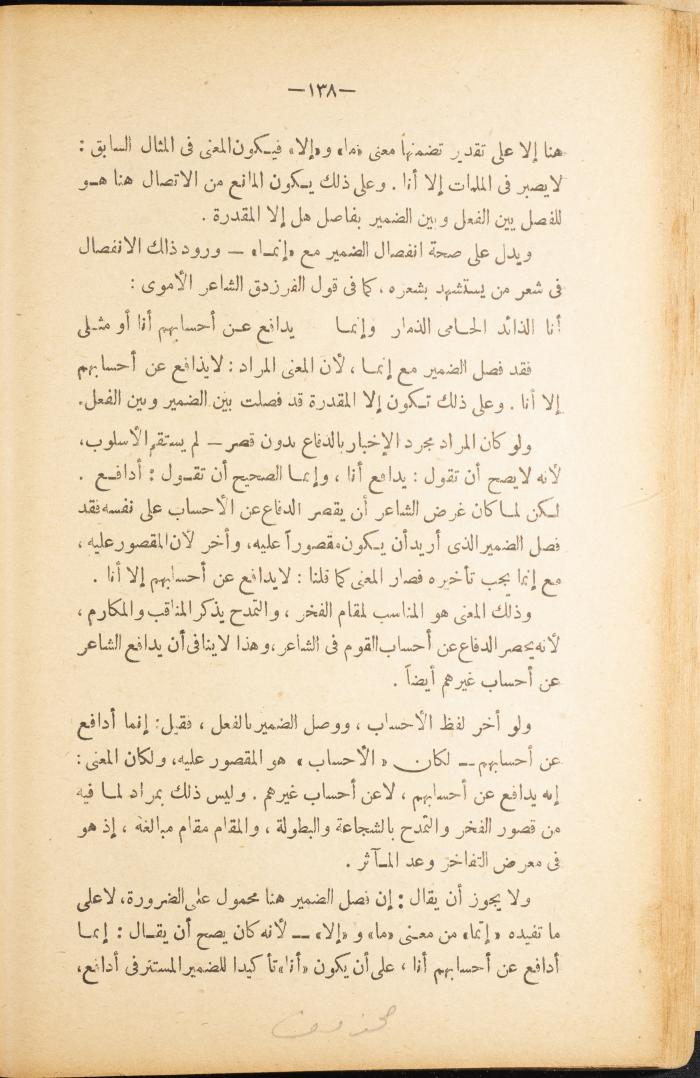 —١٣٨—
هنا إلا على تقدير تضمنها معنى «ما» و«إلا» فيكون المعنى فى المثال السابق :
لايصبر فى الملمات إلا أنا . وعلى ذلك يكون المانع من الاتصال هنا هو
للفصل بين الفعل وبين الضمير بفاصل هل إلا المقدرة .
ويدل على صحة انفصال الضمير مع «إنما» — ورود ذالك الانفصال
فى شعر من يستشهد بشعره ، كما فى قول الفرزدق الشاعر الأموى :
أنا الذائد الحامى الذمار وإنما يدافع عن أحسابهم أنا أو مثلى
فقد فصل الضمير مع إنما ، لأن المعنى المراد : لايذافع عن أحسابهم
إلا أنا . وعلى ذلك تكون إلا المقدرة قد فصلت بين الضمير وبين الفعل.
ولو كان المراد مجرد الإخبار بالدفاع بدون قصر — لم يستقم الأسلوب،
لأنه لايصح أن تقول : يدافع أنا ، وإنما الصحيح أن تقول : أدافع .
لكن لما كان غرض الشاعر أن يقصر الدفاع عن الأحساب على نفسه فقد
فصل الضمير الذى أريد أن يكون مقصوراً عليه، وأخر لأن المقصور عليه ،
مع إنما يجب تأخيره فصار المعنى كما قلنا : لايدافع عن أحسابهم إلا أنا .
وذلك المعنى هو المناسب لمقام الفخر ، والتمدح يذكر المناقب والمكارم ،
لأنه يحصر الدفاع عن أحساب القوم فى الشاعر، وهذا لاينافى أن يدافع الشاعر
عن أحساب غيرهم أيضاً .
ولو أخر لفظ الأحساب ، ووصل الضمير بالفعل ، فقيل: إنما أدافع
عن أحسابهم — لكان « الأحساب » هو المقصور عليه، ولكان المعنى :
إنه يدافع عن أحسابهم ، لاعن أحساب غيرهم . وليس ذلك بمراد لما فيه
من قصور الفخر والتمدح بالشجاعة والبطولة ، والمقام مقام مبالغة ، إذ هو
فى معرض التفاخر وعد المآثر .
ولا يجوز أن يقال : إن فصل الضمير هنا محمول على الضرورة، لاعلى
ما تفيده «إنما» من معنى «ما» و «إلا» — لأنه كان يصح أن يقال : إنما
أدافع عن أحسابهم أنا ، على أن يكون «أنا» تأكيدا للضمير المستتر فى أدافع،